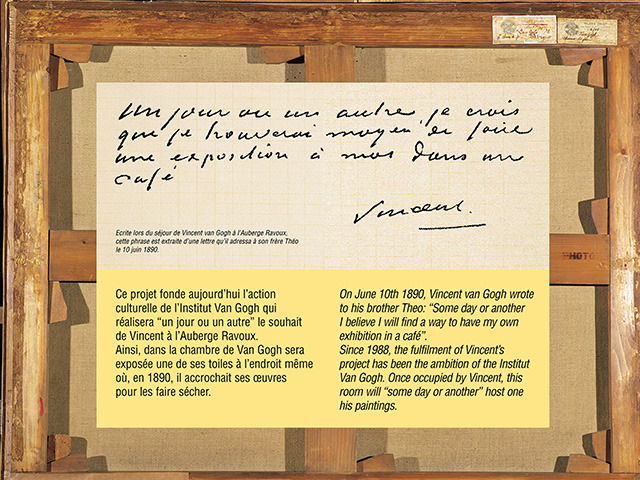 Un jour ou un autre je crois
que je trouverai moyen de faire
une exposition à moi dans un
café
Vincent.
Ecrite lors du séjour de Vincent van Gogh à l'Auberge Ravoux,
cette phrase est extraite d'une lettre qu'il adressa à son frère Théo
le 10 juin 1890.
PHOTO
Ce projet fonde aujourd'hui l'action
culturelle de l'Institut Van Gogh qui
réalisera “un jour ou un autre” le souhait
de Vincent à l'Auberge Ravoux.
Ainsi, dans la chambre de Van Gogh sera
exposée une de ses toiles à l'endroit même
où, en 1890, il accrochait ses œuvres
pour les faire sécher.
On June 10th 1890, Vincent van Gogh wrote
to his brother Theo: “Some day or another
I believe I will find a way to have my own
exhibition in a café”.
Since 1988, the fulfilment of Vincent's
project has been the ambition of the Institut
Van Gogh. Once occupied by Vincent, this
room will “some day or another” host one
his paintings.